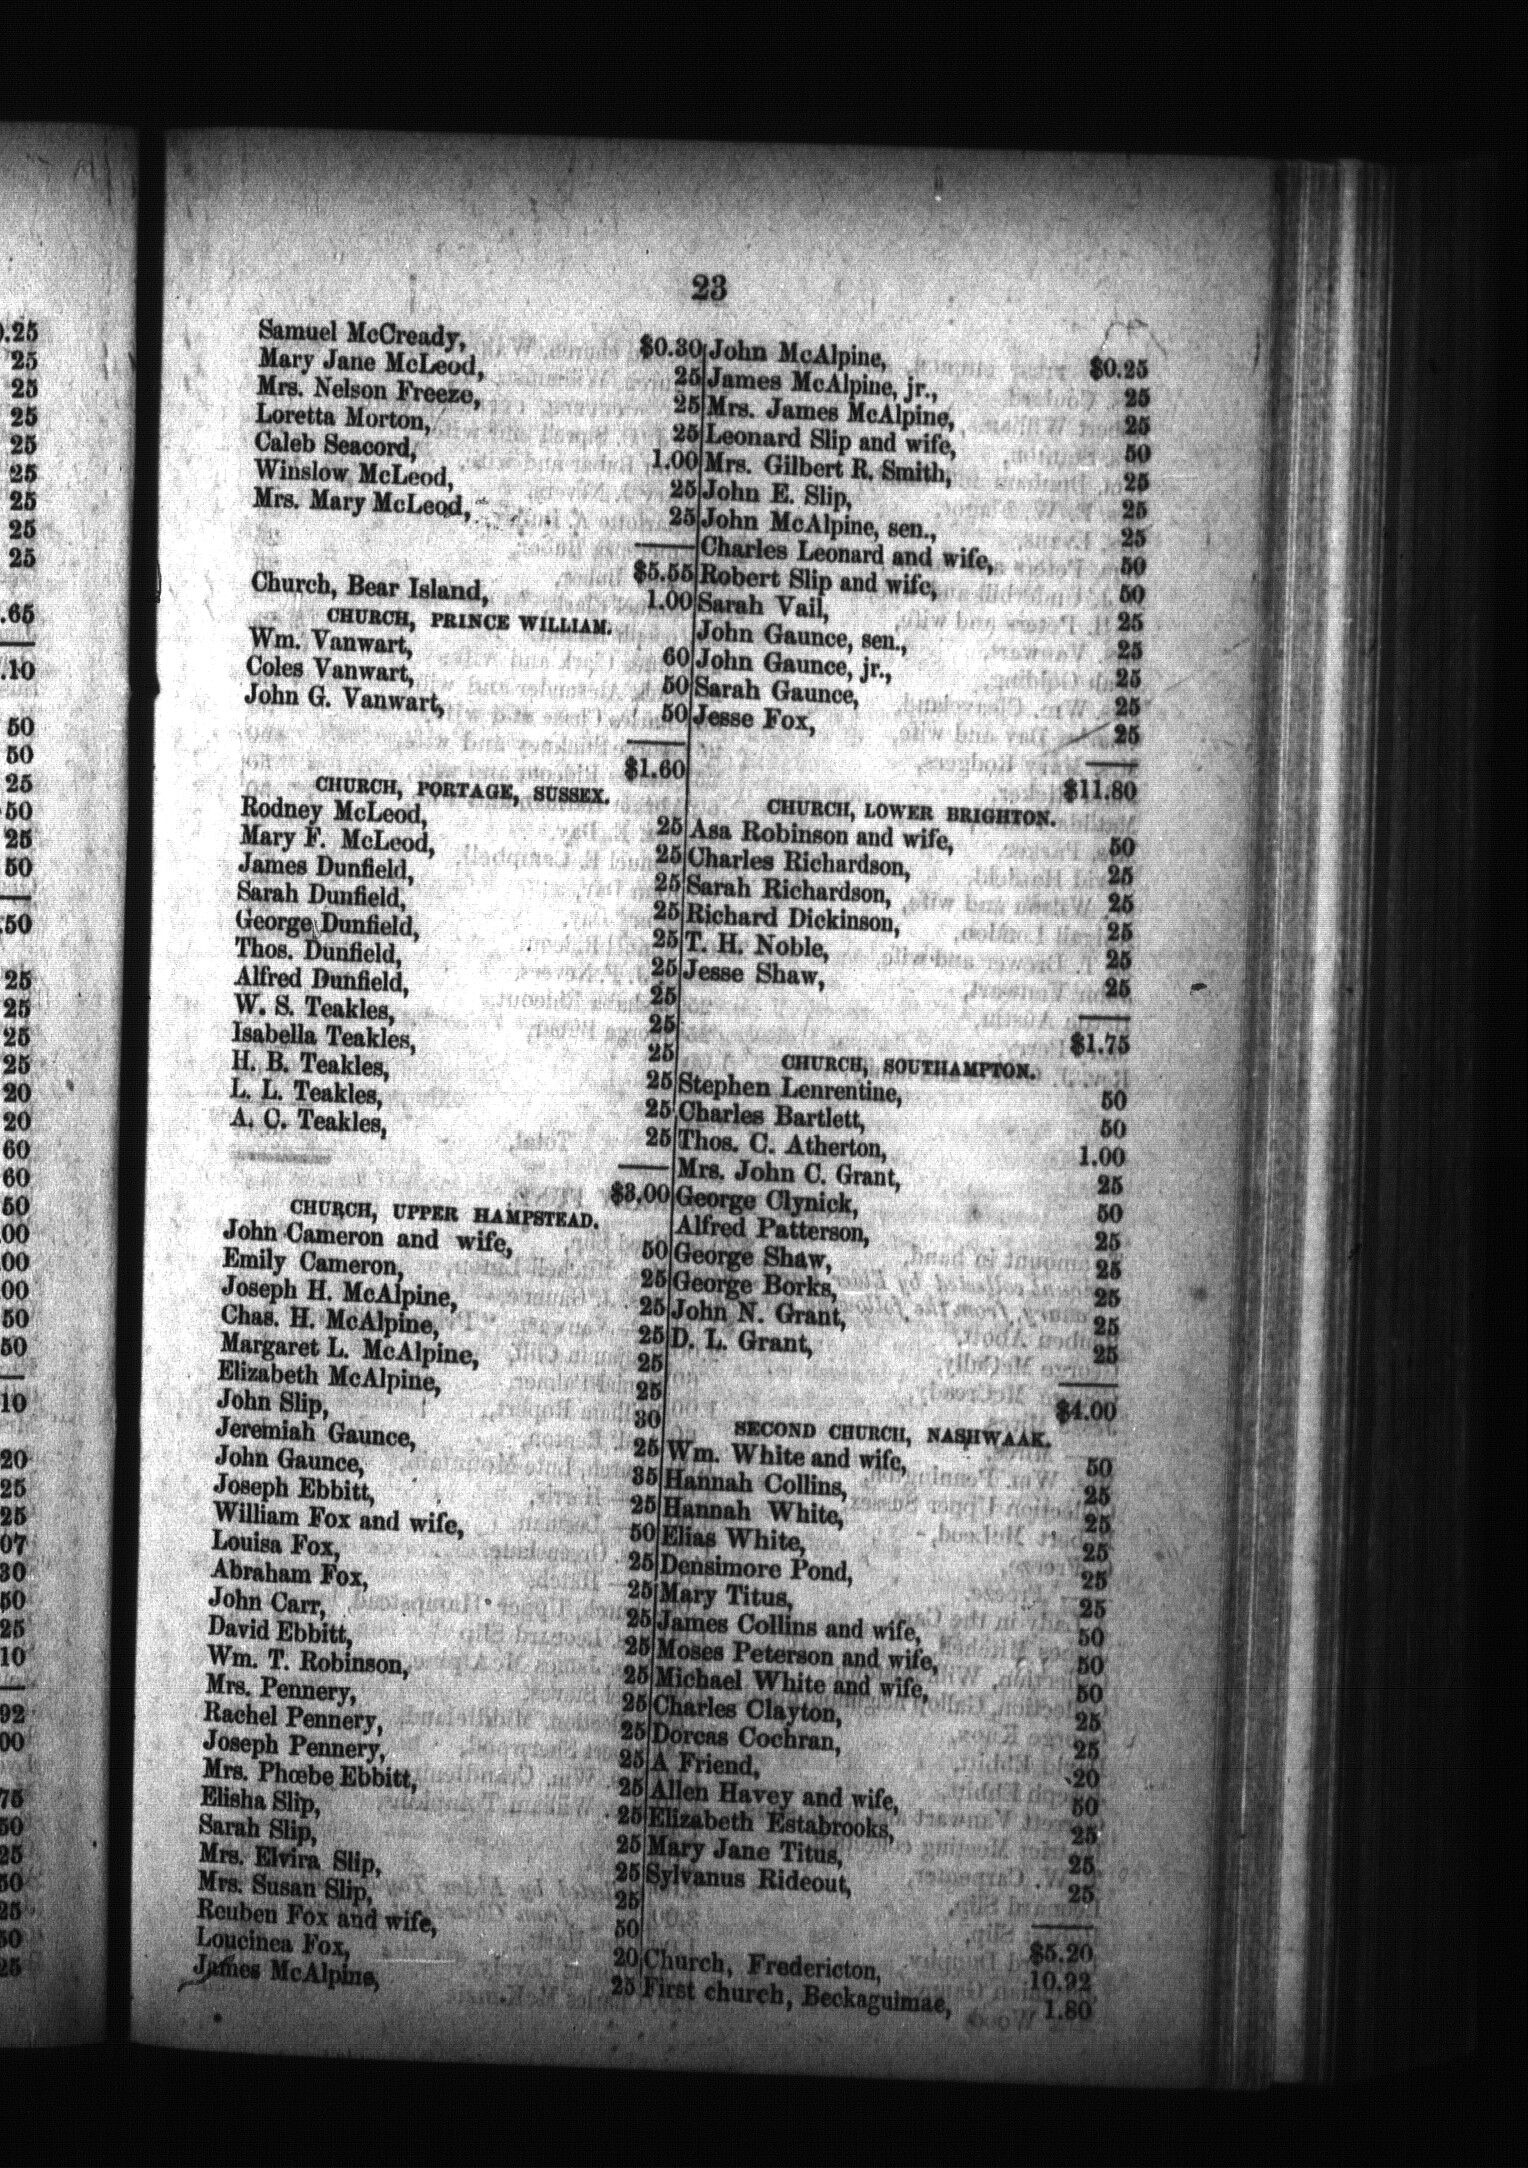 23
Samuel McCready, $0.30
Mary Jane McLeod, 25
Mrs. Nelson Freeze, 25
Loretta Morton, 25
Caleb Seacord, 1.00
Winslow McLeod, 25
Mrs. Mary McLeod, 25
$5.55
Church, Bear Island, 1.00
CHURCH, PRINCE WILLIAM.
Wm. Vanwart, 60
Coles Vanwart, 50
John G. Vanwart, 50
$1.60
CHURCH, PORTAGE, SUSSEX.
Rodney McLeod, 25
Mary F. McLeod, 25
James Dunfield, 25
Sarah Dunfield, 25
George Dunfield, 25
Thos. Dunfield, 25
Alfred Dunfield, 25
W. S. Teakles, 25
Isabella Teakles, 25
H. B. Teakles, 25
L. L. Teakles, 25
A. C. Teakles, 25
$3.00
CHURCH, UPPER HAMPSTEAD.
John Cameron and wife, 50
Emily Cameron, 25
Joseph H. McAlpine, 25
Chas. H. McAlpine, 25
Margaret L. McAlpine, 25
Elizabeth McAlpine, 25
John Slip, 30
Jeremiah Gaunce, 25
John Gaunce, 35
Joseph Ebbitt, 25
William Fox and wife, 50
Louisa Fox, 25
Abraham Fox, 25
John Carr, 25
David Ebbitt, 25
Wm. T. Robinson, 25
Mrs. Pennery, 25
Rachel Pennery, 25
Joseph Pennery, 25
Mrs. Phœbe Ebbitt, 25
Elisha Slip, 25
Sarah Slip, 25
Mrs. Elvira Slip, 25
Mrs. Susan Slip, 25
Reuben Fox and wife, 50
Loucinea Fox, 20
James McAlpine, 25
John McAlpine, $0.25
James McAlpine, jr., 25
Mrs. James McAlpine, 25
Leonard Slip and wife, 50
Mrs. Gilbert R. Smith, 25
John E. Slip, 25
John McAlpine, sen., 25
Charles Leonard and wife, 50
Robert Slip and wife, 50
Sarah Vail, 25
John Gaunce, sen., 25
John Gaunce, jr., 25
Sarah Gaunce, 25
Jesse Fox, 25
$11.80
CHURCH, LOWER BRIGHTON.
Asa Robinson and wife, 50
Charles Richardson, 25
Sarah Richardson, 25
Richard Dickinson, 25
T. H. Noble, 25
Jesse Shaw, 25
$1.75
CHURCH, SOUTHAMPTON.
Stephen Lenrentine, 50
Charles Bartlett, 50
Thos. C. Atherton, 1.00
Mrs. John C. Grant, 25
George Clynick, 50
Alfred Patterson, 25
George Shaw, 25
George Borks, 25
John N. Grant, 25
D. L. Grant, 25
$4.00
SECOND CHURCH, NASHWAAK.
Wm. White and wife, 50
Hannah Collins, 25
Hannah White, 25
Elias White, 25
Densimore Pond, 25
Mary Titus, 25
James Collins and wife, 50
Moses Peterson and wife, 50
Michael White and wife, 50
Charles Clayton, 25
Dorcas Cochran, 25
A Friend, 20
Allen Havey and wife, 50
Elizabeth Estabrooks, 25
Mary Jane Titus, 25
Sylvanus Rideout, 25
$5.20
Church, Fredericton, 10.92
First church, Beckaguimae, 1.80